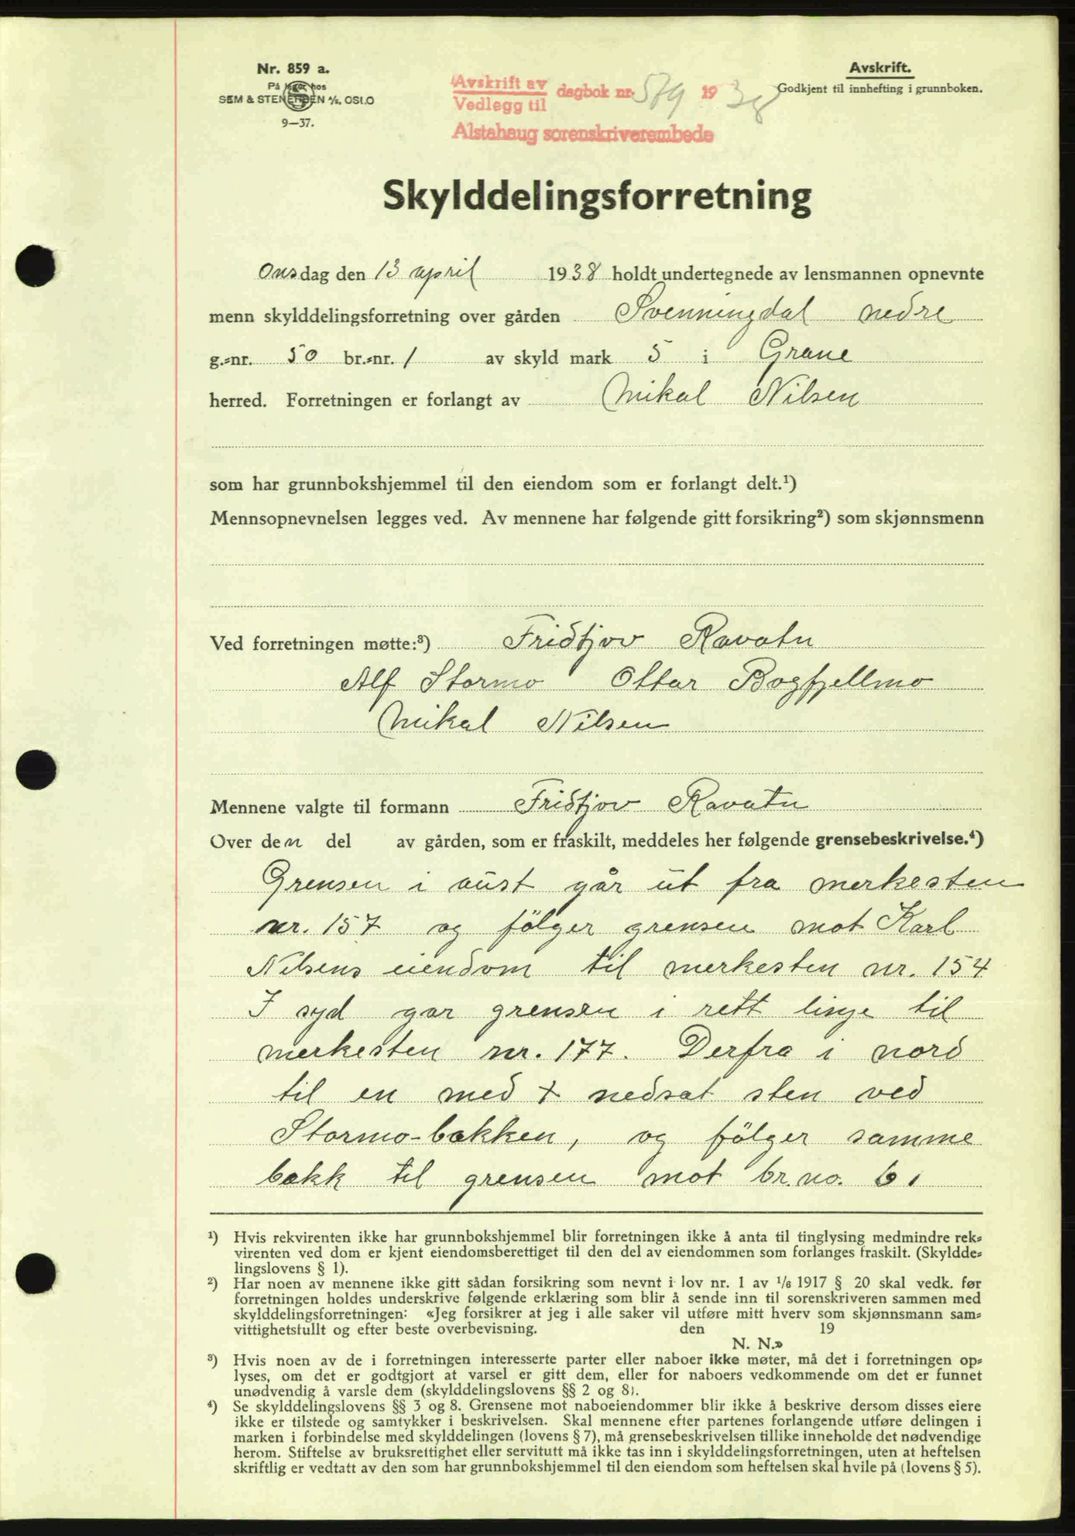 Nr. 859 a.
På lager hos
SEM & STENERSEN A/S, OSLO
9—37.
Avskrift av
Vedlegg til
dagbok nr. 579 1938
Alstahaug sorenskriverembede
Avskrift.
Godkjent til innhefting i grunnboken.
Skylddelingsforretning
Onsdag den 13 april 1938 holdt undertegnede av lensmannen opnevnte
menn skylddelingsforretning over gården Svenningdal nedre
g.-nr. 50 br.-nr. 1 av skyld mark 5 i Grane
herred. Forretningen er forlangt av Mikal Nilsen
som har grunnbokshjemmel til den eiendom som er forlangt delt.¹)
Mennsopnevnelsen legges ved. Av mennene har følgende gitt forsikring²) som skjønnsmenn
Ved forretningen møtte:³) Fridtjov Ravatn
Alf Stormo Ottar Bogfjellmo
Mikal Nilsen
Mennene valgte til formann Fridtjov Ravatn
Over den del av gården, som er fraskilt, meddeles her følgende grensebeskrivelse.⁴)
Grensen i aust går ut fra merkesten
nr. 157 og fölger grensen mot Karl
Nilsens eiendom til merkesten nr. 154
I syd gar grensen i rett linje til
merkesten nr. 177. Derfra i nord
til en med + nedsat sten ved
Stormo-bekken, og fölger samme
bekk til grensen mot br.no. 6.
¹) Hvis rekvirenten ikke har grunnbokshjemmel blir forretningen ikke å anta til tinglysing medmindre rek-
virenten ved dom er kjent eiendomsberettiget til den del av eiendommen som forlanges fraskilt. (Skyldde-
lingslovens § 1).
²) Har noen av mennene ikke gitt sådan forsikring som nevnt i lov nr. 1 av 1/6 1917 § 20 skal vedk. før
forretningen holdes underskrive følgende erklæring som blir å sende inn til sorenskriveren sammen med
skylddelingsforretningen: «Jeg forsikrer at jeg i alle saker vil utføre mitt hverv som skjønnsmann sam-
vittighetsfullt og efter beste overbevisning. den 19
N. N.»
³) Hvis noen av de i forretningen interesserte parter eller naboer ikke møter, må det i forretningen op-
lyses, om det er godtgjort at varsel er gitt dem, eller for naboers vedkommende om det er funnet
unødvendig å varsle dem (skylddelingslovens §§ 2 og 8).
⁴) Se skylddelingslovens §§ 3 og 8. Grensene mot naboeiendommer blir ikke å beskrive dersom disses eiere
ikke er tilstede og samtykker i beskrivelsen. Skal mennene efter partenes forlangende utføre delingen i
marken i forbindelse med skylddelingen (lovens § 7), må grensebeskrivelsen tillike inneholde det nødvendige
herom. Stiftelse av bruksrettighet eller servitutt må ikke tas inn i skylddelingsforretningen, uten at heftelsen
skriftlig er vedtatt av den som har grunnbokshjemmel til den eiendom som heftelsen skal hvile på (lovens § 5).